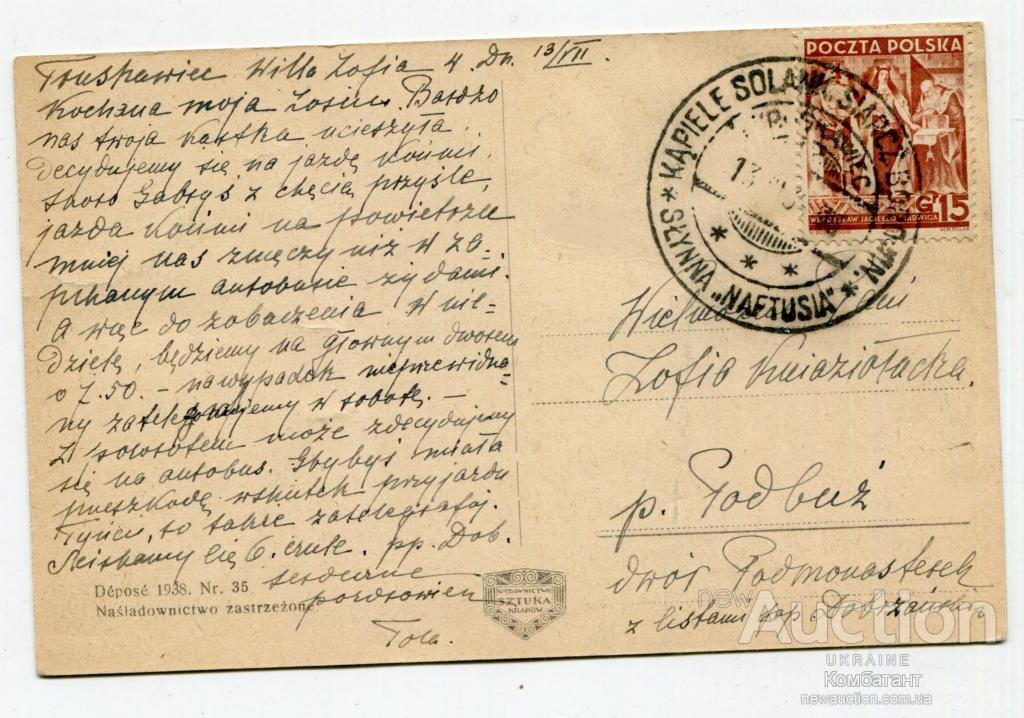 Truskawiec Willa Zofia 4. Dn. 13/VII.
Kochana moja Zosiu. Bardzo
nas twoja kartka ucieszyła.
Decydujemy się na jazdę końmi
skoro Gabryś z chęcią przyśle,
jazda końmi na powietrzu
mniej nas zmęczy niż w za-
pchanym autobusie żydami.
A więc do zobaczenia w nie-
dzielę, będziemy na głownym dworcem
o 7.50. – nawypadek nieprzewidzia-
ny zatelegrafujemy w sobotę. –
Z powrotem może zdecydujemy
się na autobus. Gbybyś miała
przeszkodę wskutek przyjazdu
to także zatelegrafuj.
Ściskamy Cię b. czule. pp. Dob.
serdeczne
pozdrowien
Tola.
Déposé 1938. Nr. 35
Naśladownictwo zastrzeżone
WYDAWNICTWO
SZTUKA
KRAKÓW
POCZTA POLSKA
GR 15
WŁADYSŁAW JAGIEŁŁO I JADWIGA
* KĄPIELE SOLANK. SIARCZ. BOROWIN. *
SŁYNNA „NAFTUSIA"
13
Zofia Kniaziołucka
p. Podbuż
dwór Podmonasterek
z listami pp. Dobrzański
newAuction
UKRAINE
Комбатант
newauction.com.ua